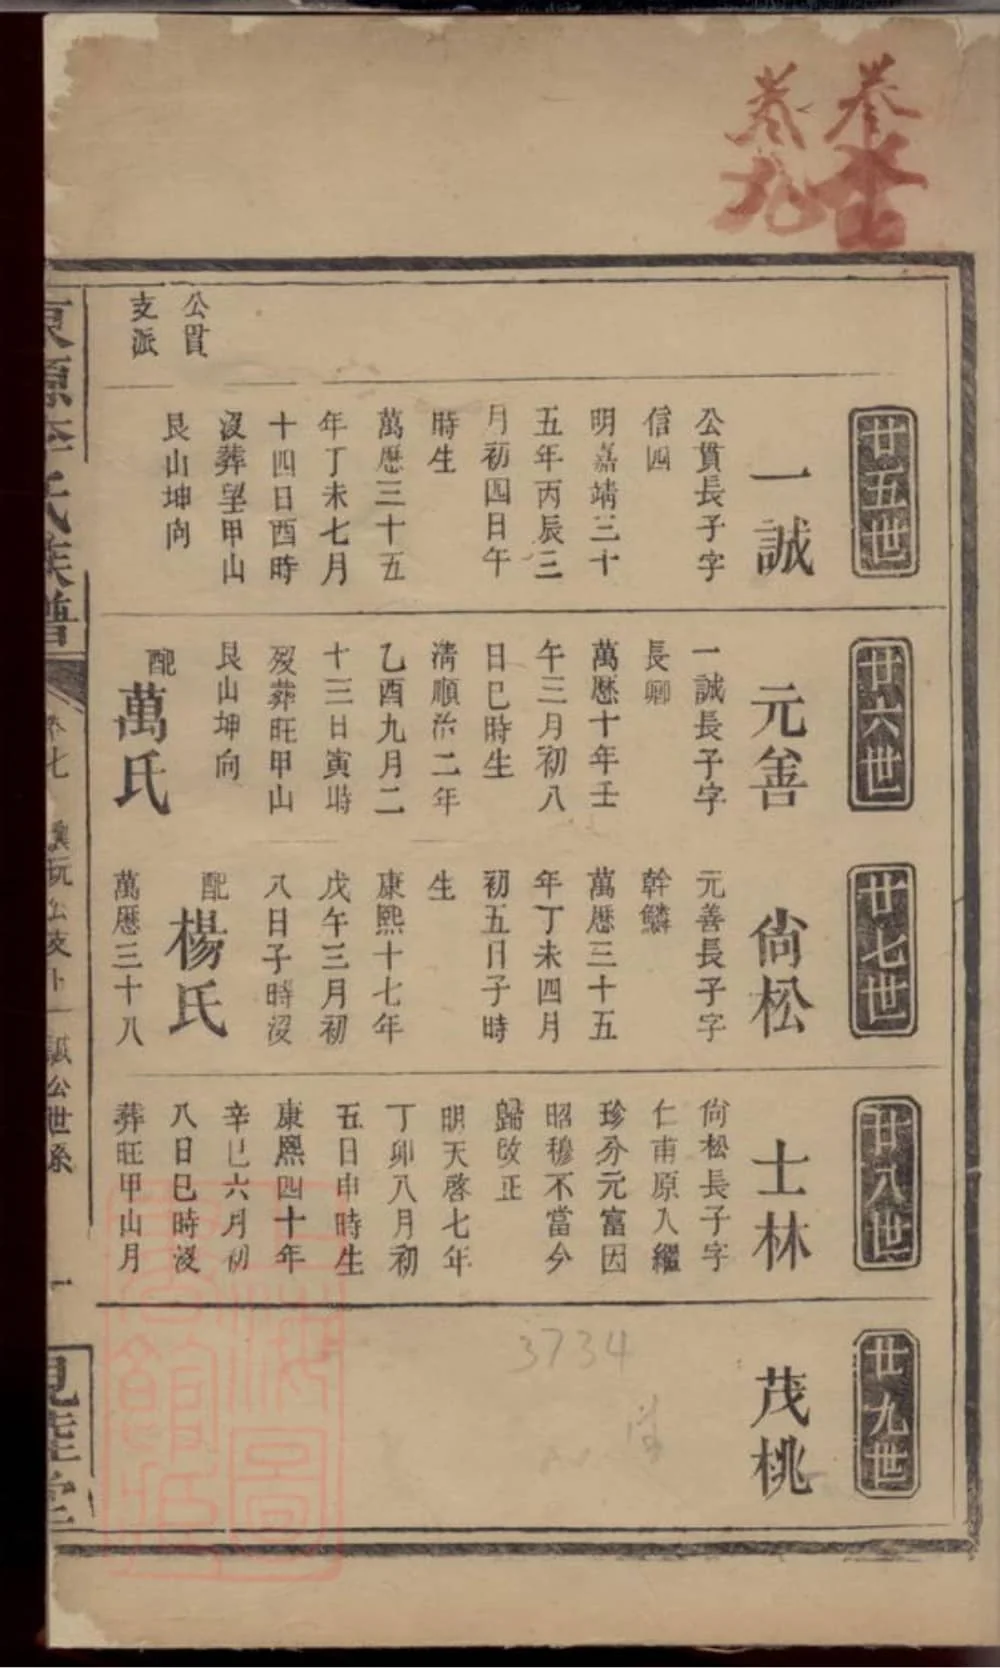 卷
卷九
公貫
支派
廿五世
一誠
公貫長子字
信四
明嘉靖三十
五年丙辰三
月初四日午
時生
萬厯三十五
年丁未七月
十四日酉時
沒葬望甲山
艮山坤向
廿六世
元善
一誠長子字
長卿
萬厯十年壬
午三月初八
日巳時生
淸順治二年
乙酉九月二
十三日寅時
歿葬旺甲山
艮山坤向
配
萬氏
廿七世
尙松
元善長子字
幹鱗
萬厯三十五
年丁未四月
初五日子時
生
康熙十七年
戊午三月初
八日子時沒
配
楊氏
萬厯三十八
廿八世
士林
尙松長子字
仁甫原入繼
珍分元富因
昭穆不當今
歸改正
明天啓七年
丁卯八月初
五日申時生
康熙四十年
辛巳六月初
八日巳時沒
葬旺甲山月
廿九世
茂桃
3734
氏族譜
卷七
公世系
一